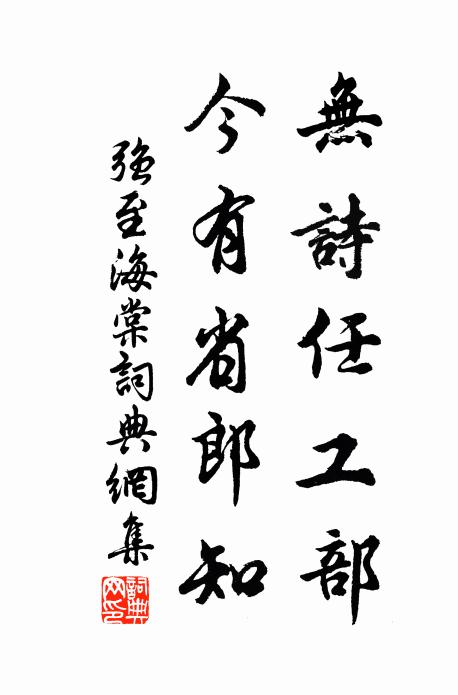 無詩任工部
今有省郎知
強至海棠詞典網集
詞典網印